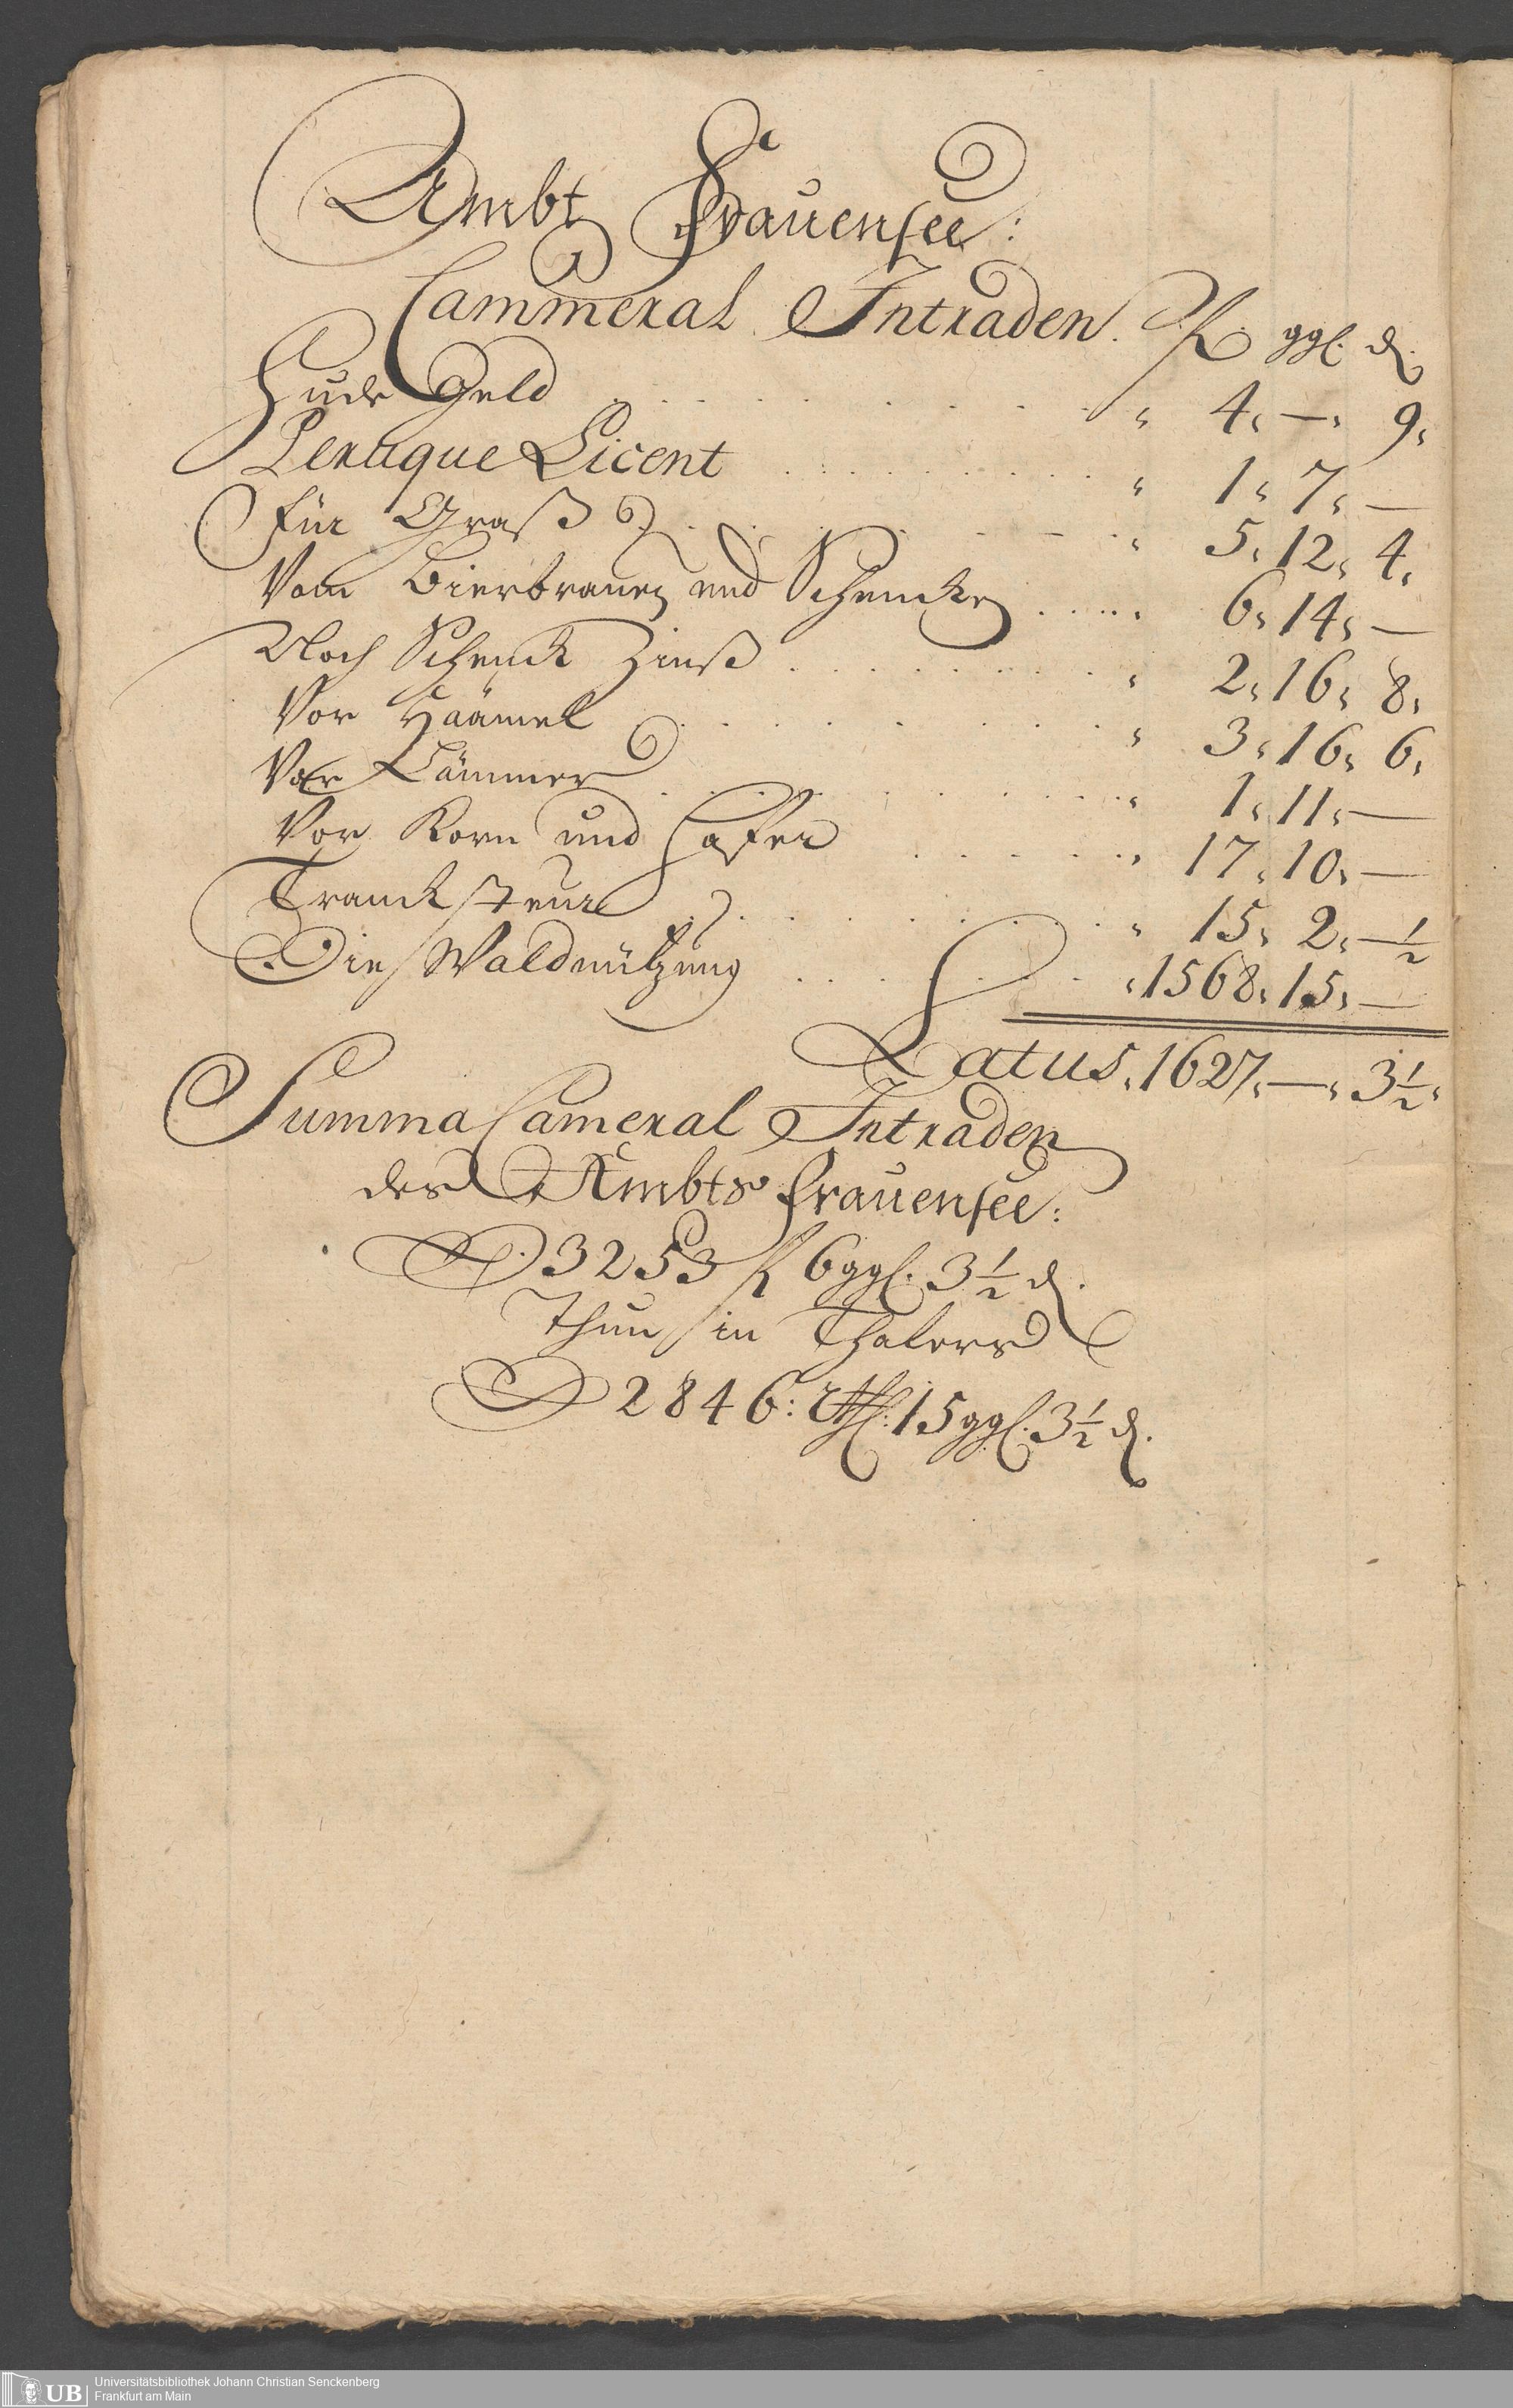 Ambt Frauensee:
Cammeral Intraden. R ggl. d.
Hude Geld . . . . . . . . . . " 4, —, 9,
Peruque Licent . . . . . . . . . . " 1, 7, —
Für Graß . . . . . . . . . . " 5, 12, 4,
Vom Bierbrauen und Schencken . . . . . 6, 14, —
Noch Schenck Zinß . . . . . . . . . . " 2, 16, 8,
Vor Häämel . . . . . . . . . . " 3, 16, 6,
Vor Lämmer . . . . . . . . . . " 1, 11, —
Vor Korn und Hafer . . . . . " 17, 10, —
Tranck steuer . . . . . . . . . . " 15, 2, — ½
Die Waldnützung . . . . . . " 1568, 15, —
Latus, 1627, —, 3½,
Summa Cameral Intraden
des Ambts Frauensee:
3253 R 6 ggl. 3½ d.
Thun in Thalers
2846: Rthl: 15 ggl. 3½ d.
UB Universitätsbibliothek Johann Christian Senckenberg
Frankfurt am Main